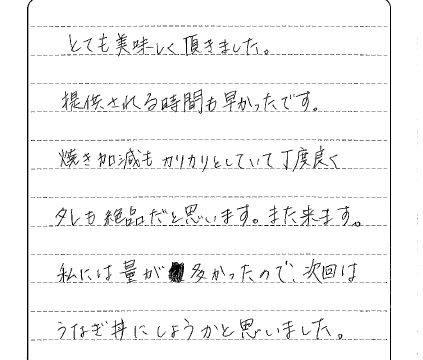 とても美味しく頂きました。
提供される時間も早かったです。
焼き加減もカリカリとしていて丁度良く
タレも絶品だと思います。また来ます。
私には量が多かったので、次回は
うなぎ丼にしようかと思いました。